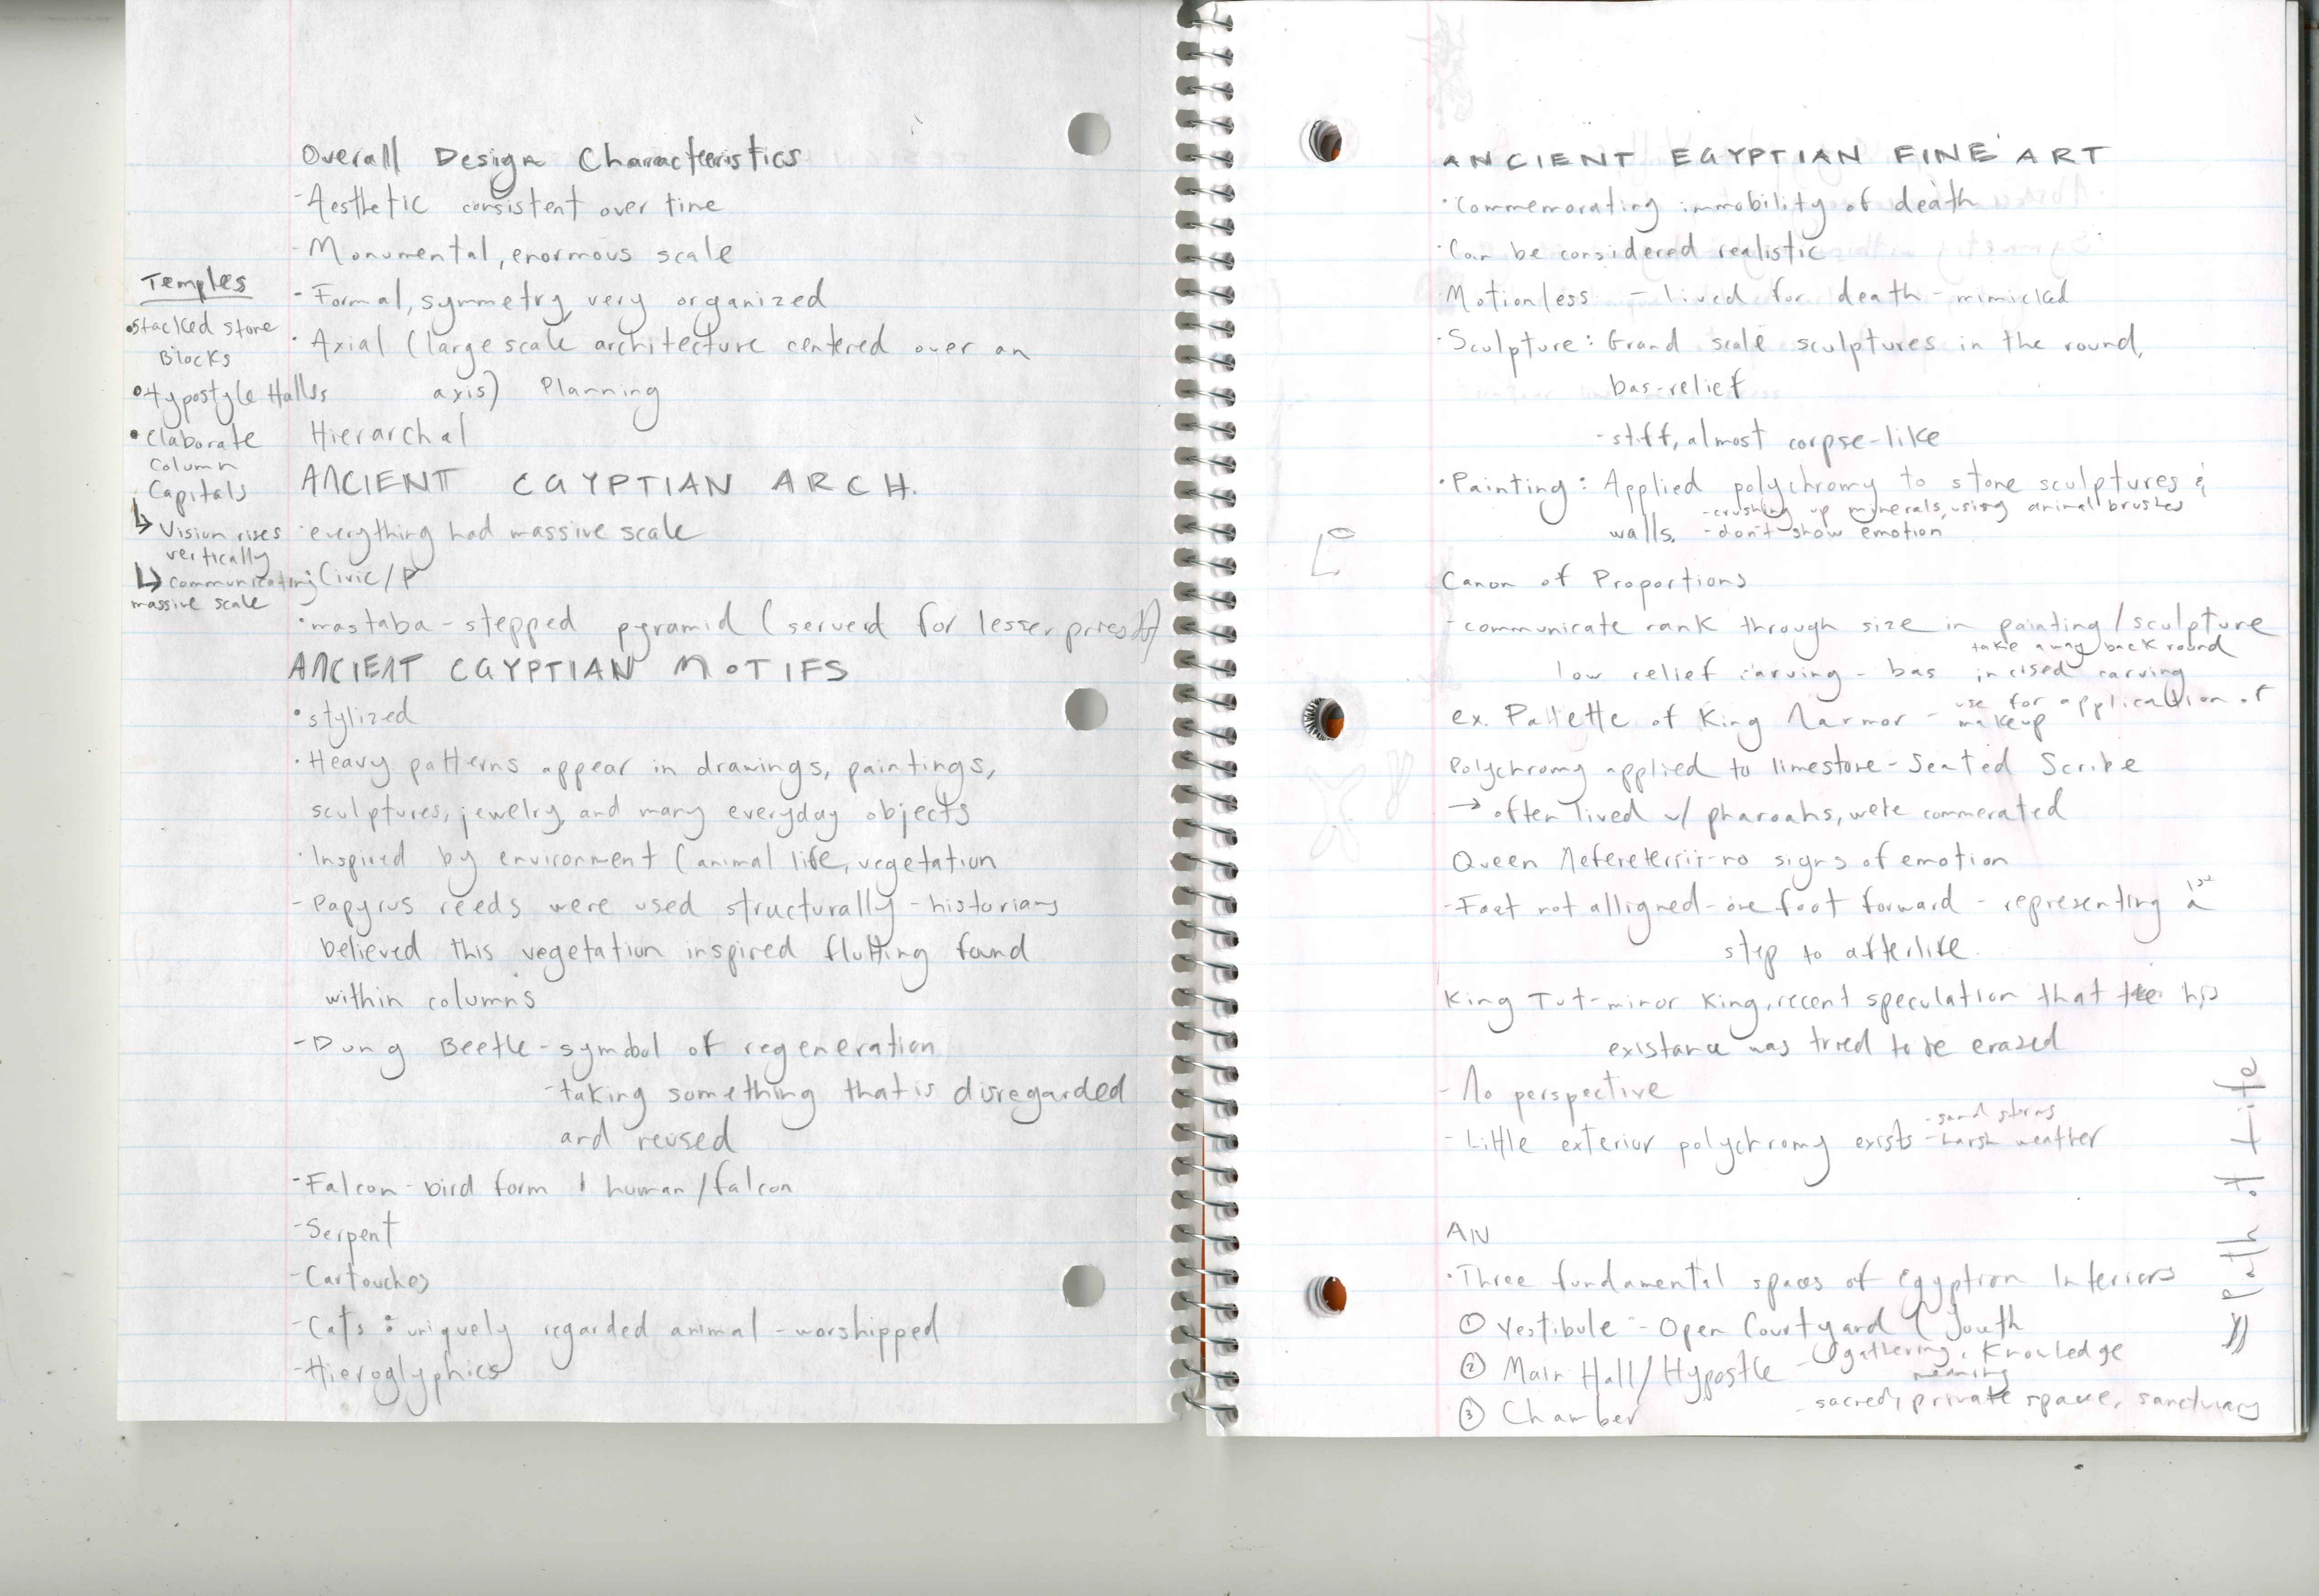 Overall Design Characteristics
-Aesthetic consistent over time
-Monumental, enormous scale
-Formal, symmetry, very organized
·Axial (large scale architecture centered over an
axis) Planning
Hierarchal
Temples
•stacked stone
Blocks
•Hypostyle Halls
•Elaborate
Column
Capitals
↳ Vision rises
vertically
↳ communicating
massive scale
ANCIENT EGYPTIAN ARCH.
·everything had massive scale
·Civic/P
·mastaba - stepped pyramid (served for lesser priests)
ANCIENT EGYPTIAN MOTIFS
·stylized
·Heavy patterns appear in drawings, paintings,
sculptures, jewelry, and many everyday objects
·Inspired by environment (animal life, vegetation
-Papyrus reeds were used structurally - historians
believed this vegetation inspired flutting found
within columns
-Dung Beetle - symbol of regeneration
-taking something that is disregarded
and reused
-Falcon - bird form / human/falcon
-Serpent
-Cartouches
-Cats: uniquely regarded animal - worshipped
-Hieroglyphics
ANCIENT EGYPTIAN FINE ART
·Commemorating immobility of death
·Can be considered realistic
·Motionless - lived for death - mimicked
·Sculpture: Grand scale sculptures in the round,
bas-relief
-stiff, almost corpse-like
·Painting: Applied polychromy to stone sculptures &
-crushing up minerals, using animal brushes
walls. -don't show emotion
Canon of Proportions
-communicate rank through size in painting/sculpture
take away back round
low relief carving - bas incised carving
ex. Pallette of King Narmor - use for application of
makeup
Polychromy applied to limestone - Seated Scribe
→ often lived w/ pharoahs, were commerated
Queen Nefereterrii-no signs of emotion
-Feet not alligned - one foot forward - representing a 1st
step to afterlife.
King Tut-minor King, recent speculation that his
existance was tried to be erased
-No perspective
-sand storms
-Little exterior polychromy exists -harsh weather
AN
·Three fundamental spaces of Egyption Interiors
① Vestibule - Open Courtyard (Youth
② Main Hall/Hypostle - gathering, Knowledge
meaning
③ Chamber - sacred, private space, sanctuary
Path of Life